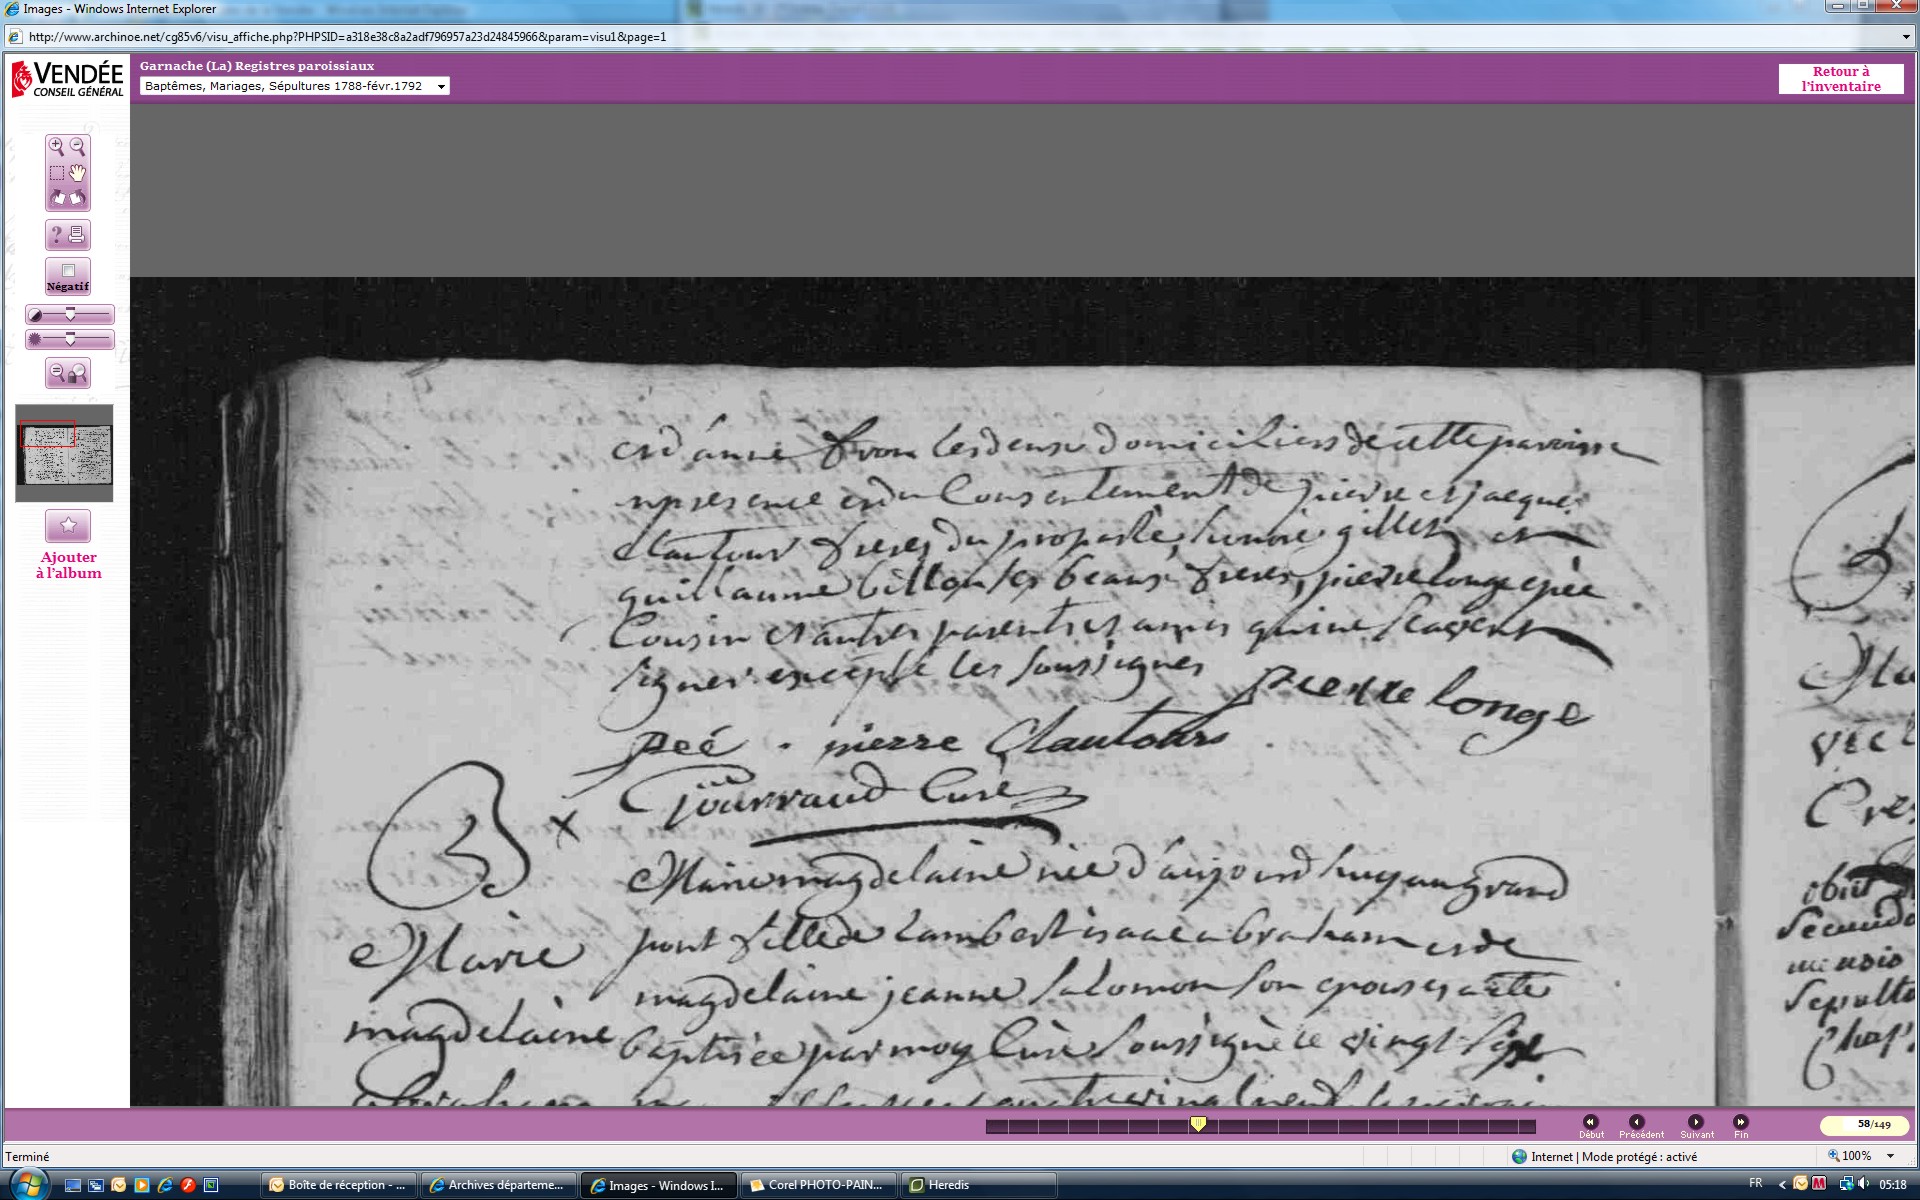 Images - Windows Internet Explorer
http://www.archinoe.net/cg85v6/visu_affiche.php?PHPSID=a318e38c8a2adf796957a23d24845966&param=visu1&page=1
VENDÉE
CONSEIL GÉNÉRAL
Garnache (La) Registres paroissiaux
Baptêmes, Mariages, Sépultures 1788-févr.1792
Retour à
l'inventaire
Négatif
Ajouter
à l'album
et d'anne les deux domiciliers de cette paroisse
en presence et du Consentement de pierre et jacque
Clautour freres du proparlé, honoré gillet et
guillaume billon ses beaux freres, pierre longepée
Cousin et autres parents et amis qui ne scavent
signer excepté les soussignes pierre longe
peé . pierre Clautours
Gourraud Curé
3 x
Marie magdelaine née d'aujourd huy au grand
pont fille de lambert isaac abraham et de
magdelaine jeanne Salomon son epouse a été
baptisée par moy Curé soussigné le vingt
Marie
magdelaine
obiit
Secunda
Sepult
Début
Précédent
Suivant
Fin
58/149
Terminé
Internet | Mode protégé : activé
100%
Boîte de réception - ...
Archives départeme...
Images - Windows I...
Corel PHOTO-PAIN...
Heredis
FR
05:18